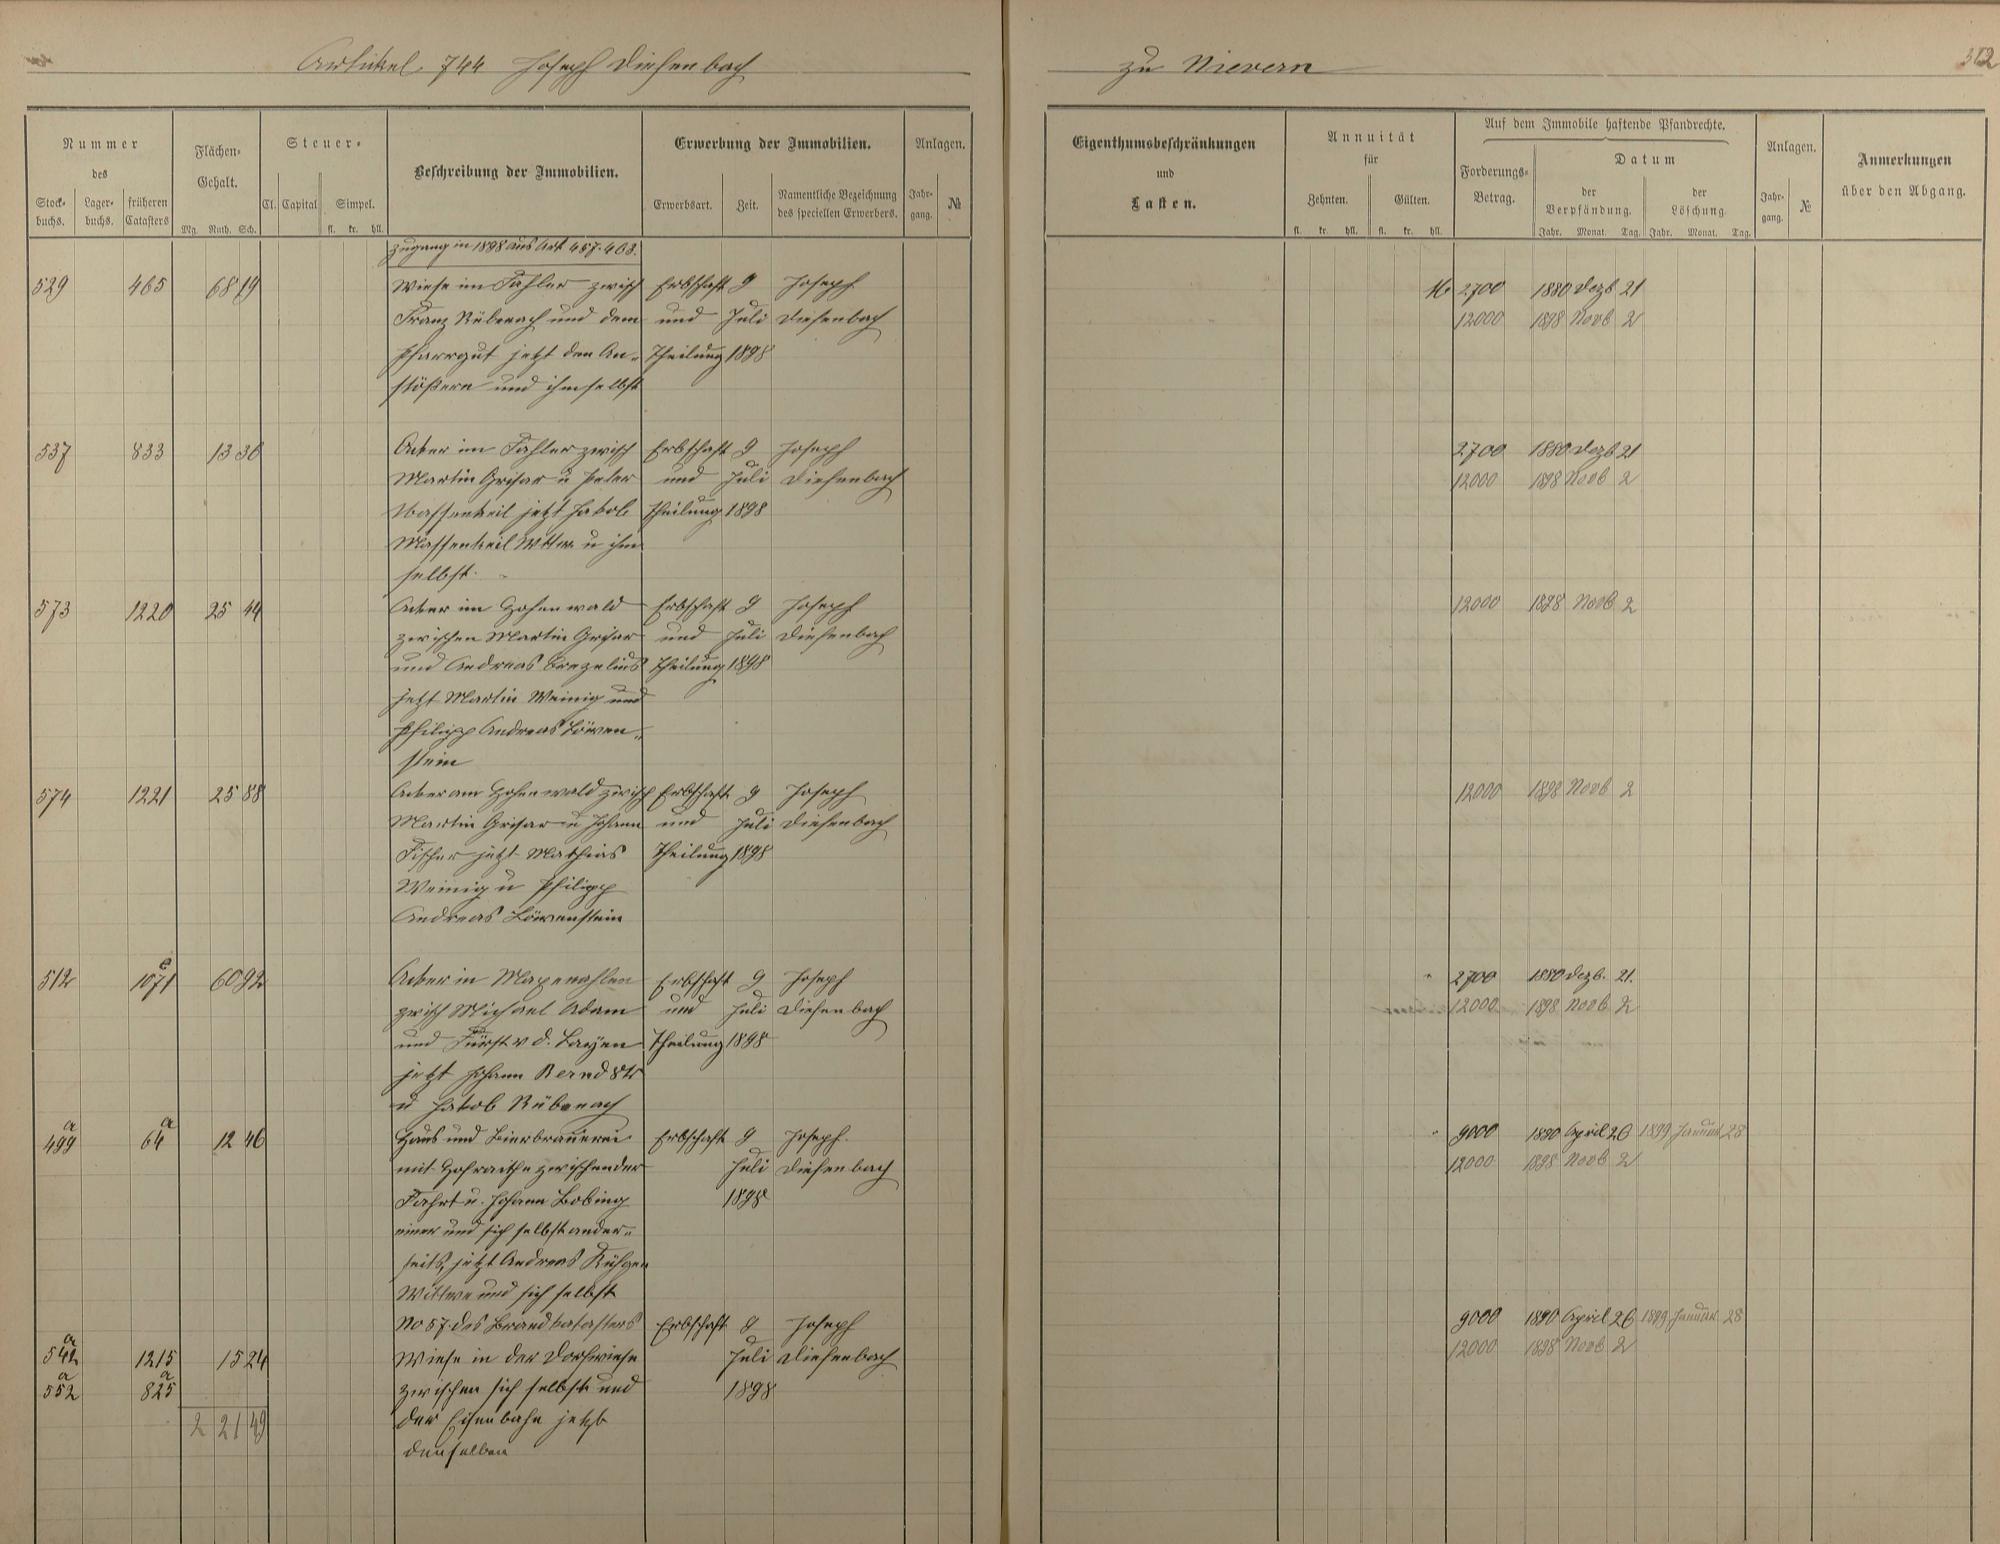 Artikel 744 Joseph Diesenbach
zu Nievern
312
Nummer
des
Stock-buchs. Lager-buchs. früheren Catasters
Flächen-Gehalt.
Mg. Ruth. Sch.
Steuer-
Cl. Capital Simpel.
fl. kr. hll.
Beschreibung der Immobilien.
Erwerbung der Immobilien.
Erwerbsart. Zeit. Namentliche Bezeichnung des speciellen Erwerbers.
Anlagen.
Jahr-gang. №
Eigenthumsbeschränkungen
und
Lasten.
Annuität
für
Zehnten. Gülten.
fl. kr. hll. fl. kr. hll.
Auf dem Immobile haftende Pfandrechte.
Forderungs-Betrag.
Datum
der Verpfändung. der Löschung
Jahr. Monat. Tag. Jahr. Monat. Tag.
Anlagen.
Jahr-gang. №
Anmerkungen
über den Abgang.
Zugang in 1898 aus Art 457. 403.
529 465 68 19 Wiese im Fahler zwisch Erbschaft 9 Joseph 2700 1880 Dezb 21
Franz Rübenach und dem und Juli Diesenbach 12000 1898 Novb 2
Pfarrgut jetzt den An- Theilung 1898
stößern und ihm selbst
537 833 13 36 Acker im Fahler zwisch Erbschaft 9 Joseph 2700 1880 Dezb 21
Martin Grisar u Peter und Juli Diesenbach 12000 1898 Novb 2
Massenkeil jetzt Jakob Theilung 1898
Massenkeil Wttw. u ihm
selbst.
573 1220 25 44 Acker im Hohenwald Erbschaft 9 Joseph 12000 1898 Novb 2
zwischen Martin Grisar und Juli Diesenbach
und Andreas Brezelius Theilung 1898
jetzt Martin Weinig und
Philipp Andreas Löwen-
stein
574 1221 25 88 Acker am Hohenwald zwisch Erbschaft 9 Joseph 12000 1898 Novb 2
Martin Grisar u Johann und Juli Diesenbach
Fischer jetzt Mathias Theilung 1898
Weinig u Philipp
Andreas Löwenstein
512 1071 e 60 92 Acker in Erbschaft 9 Joseph 2700 1880 Dezb. 21.
zwisch Michael Adam und Juli Diesenbach 12000 1898 Novb 2
und Fürst v d. Leyen Theilung 1898
jetzt Johann Bernd 8tr
u Jakob Rübenach
499 a 64 a 12 46 Haus und Bierbrauerei Erbschaft 9 Joseph. 9000 1890 April 26 1899 Januar 28
mit Hofraithe zwischen der Juli Diesenbach 12000 1898 Novb 2
Fahrt u. Johann Bobing 1898
einer und sich selbst ander-
seits, jetzt Andreas
Wittwe und sich selbst
No 57. des Brandkatasters Erbschaft 9 Joseph 9000 1890 April 26 1899 Januar 28
542 a 1215 15 24 Wiese in der Dorfwiese Juli Diesenbach 12000 1898 Novb 2
552 a 825 a zwischen sich selbst und 1898
2 21 49 der Eisenbahn jetzt
denselben